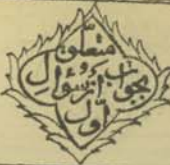 متعلق
بجواب از سؤال
اول